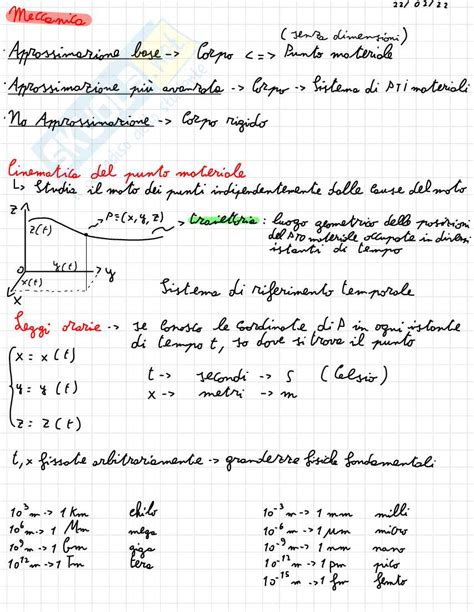 22/03/22
Meccanica
(senza dimensioni)
· Approssimazione base -> Corpo <=> Punto materiale
· Approssimazione più avanzata -> Corpo -> Sistema di PTI materiali
· No Approssimazione -> Corpo rigido
Cinematica del punto materiale
L> Studia il moto dei punti indipendentemente dalle cause del moto
z
z(t)
P=(x,y,z)
-> traiettoria: luogo geometrico delle posizioni
del PTO materiale occupate in diversi
istanti di tempo
O
y(t)
y
x(t)
x
Sistema di riferimento temporale
Leggi orarie -> se conosco le coordinate di P in ogni istante
di tempo t, so dove si trova il punto
x = x(t)
y = y(t)
z = z(t)
t -> secondi -> s (Celsio)
x -> metri -> m
t, x fissate arbitrariamente -> grandezze fisiche fondamentali
10³m -> 1 Km chilo
10⁶m -> 1 Mm mega
10⁹m -> 1 Gm giga
10¹²m -> 1 Tm tera
10⁻³m -> 1 mm milli
10⁻⁶m -> 1 μm micro
10⁻⁹m -> 1 nm nano
10⁻¹²m -> 1 pm pico
10⁻¹⁵m -> 1 fm femto